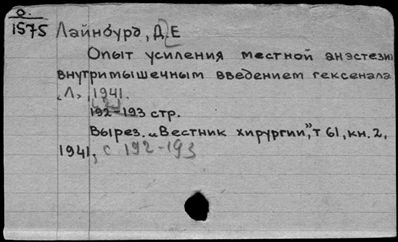 О.
1575
Лайнбурд, Д. Е
Опыт усиления местной анэстезии
внутримышечным введением гексенала
„Л.", 1941.
192-193 стр.
Вырез. „Вестник хирургии", т 61, кн. 2,
1941, с 192-193